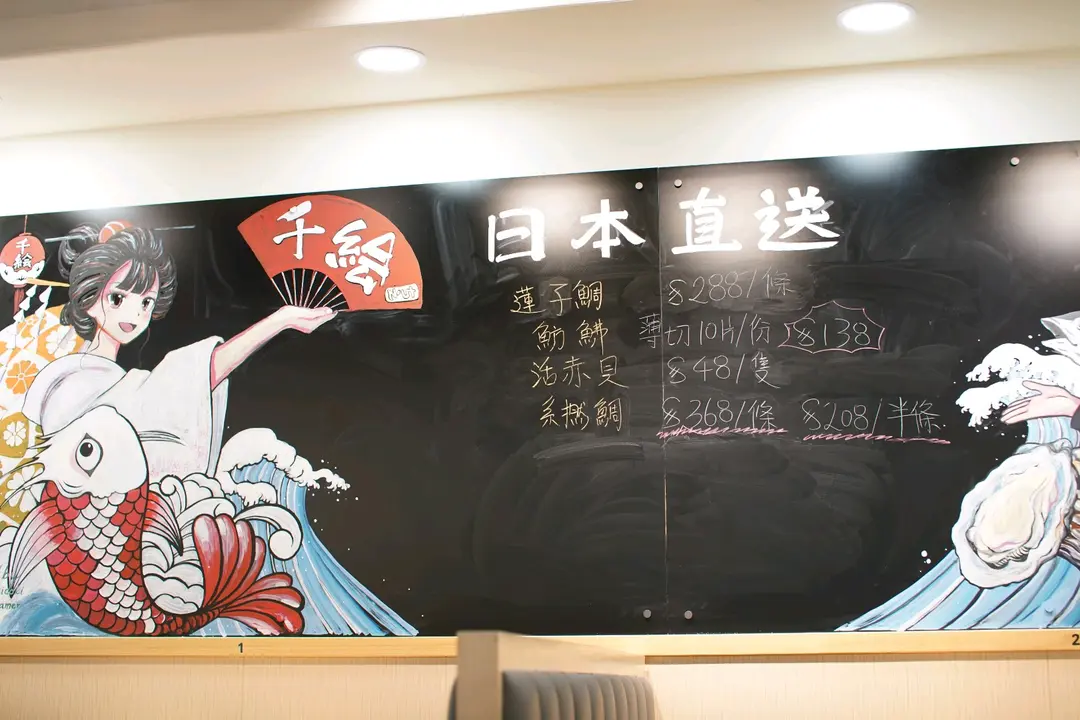 千絵
千絵
日本直送
蓮子鯛 $288/條
魴鮄 薄切10片/份 $138
活赤貝 $48/隻
系撚鯛 $368/條 $208/半條
1
2